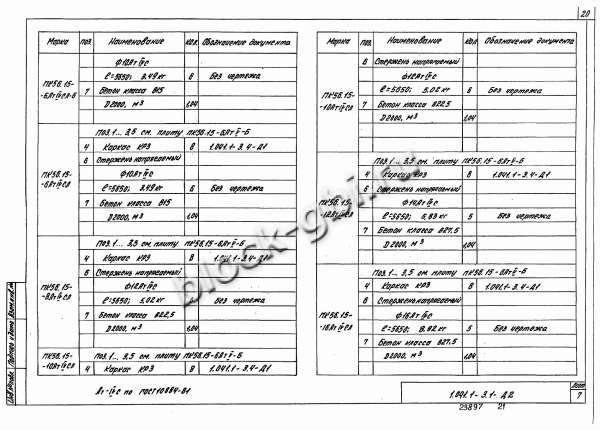 20
Марка поз. Наименование кол. Обозначение документа
ПК56.15-
-6АтIVСЛ-Б
Ф10АтIVС
ℓ=5650; 3.49 кг 6 Без чертежа
7 Бетон класса В15
D2000, м³ 1.04
ПК56.15-
-6АтIVСЛ
Поз. 1... 3,5 см. плиту ПК56.15-6АтV-Б
4 Каркас КР3 8 1.041.1-3.4-Д1
6 Стержень напрягаемый
Ф10АтIVС
ℓ=5650; 3.49 кг 6 Без чертежа
7 Бетон класса В15
D2000, м³ 1.04
ПК56.15-
-8АтIVСЛ
Поз. 1... 3,5 см. плиту ПК56.15-6АтV-Б
4 Каркас КР3 8 1.041.1-3.4-Д1
6 Стержень напрягаемый
Ф12АтIVС
ℓ=5650; 5.02 кг Без чертежа
7 Бетон класса В22,5
D2000, м³ 1.04
ПК56.15-
-10АтIVСЛ
Поз. 1... 3,5 см. плиту ПК56.15-6АтV-Б
4 Каркас КР3 8 1.041.1-3.4-Д1
Ат-IVС по ГОСТ10884-81
Марка поз. Наименование кол. Обозначение документа
ПК56.15-
-10АтIVСЛ
6 Стержень напрягаемый
Ф12АтIVС
ℓ=5650; 5.02 кг 6 Без чертежа
7 Бетон класса В22,5
D2000, м³ 1.04
ПК56.15-
-12АтIVСЛ
Поз. 1... 3,5 см. плиту ПК56.15-6АтV-Б
4 Каркас КР3 8 1.041.1-3.4-Д1
6 Стержень напрягаемый
Ф14АтIVС
ℓ=5650; 6.83 кг 5 Без чертежа
7 Бетон класса В27,5
D2000, м³ 1.04
ПК56.15-
-16АтIVСЛ
Поз. 1... 3,5 см. плиту ПК56.15-6АтV-Б
4 Каркас КР3 8 1.041.1-3.4-Д1
6 Стержень напрягаемый
Ф16АтIVС
ℓ=5650; 8.92 кг 5 Без чертежа
7 Бетон класса В27,5
D2000, м³ 1.04
1.041.1-3.1-Д2
Лист
7
23897 21
Инв.№подл. Подпись и дата Взам.инв.№
block-gbi.ru